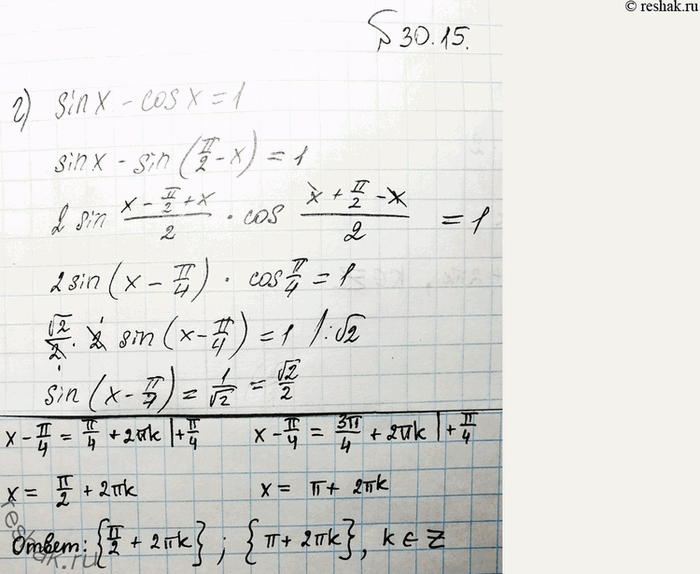 © reshak.ru
№ 30.15.
г) sin x - cos x = 1
sin x - sin (π/2 - x) = 1
2 sin (x - π/2 + x)/2 · cos (x + π/2 - x)/2 = 1
2 sin (x - π/4) · cos π/4 = 1
√2/2 · 2 sin (x - π/4) = 1 /:√2
sin (x - π/4) = 1/√2 = √2/2
x - π/4 = π/4 + 2πk |+π/4 x - π/4 = 3π/4 + 2πk |+π/4
x = π/2 + 2πk x = π + 2πk
Ответ: {π/2 + 2πk} ; {π + 2πk}, k ∈ Z
reshak.ru